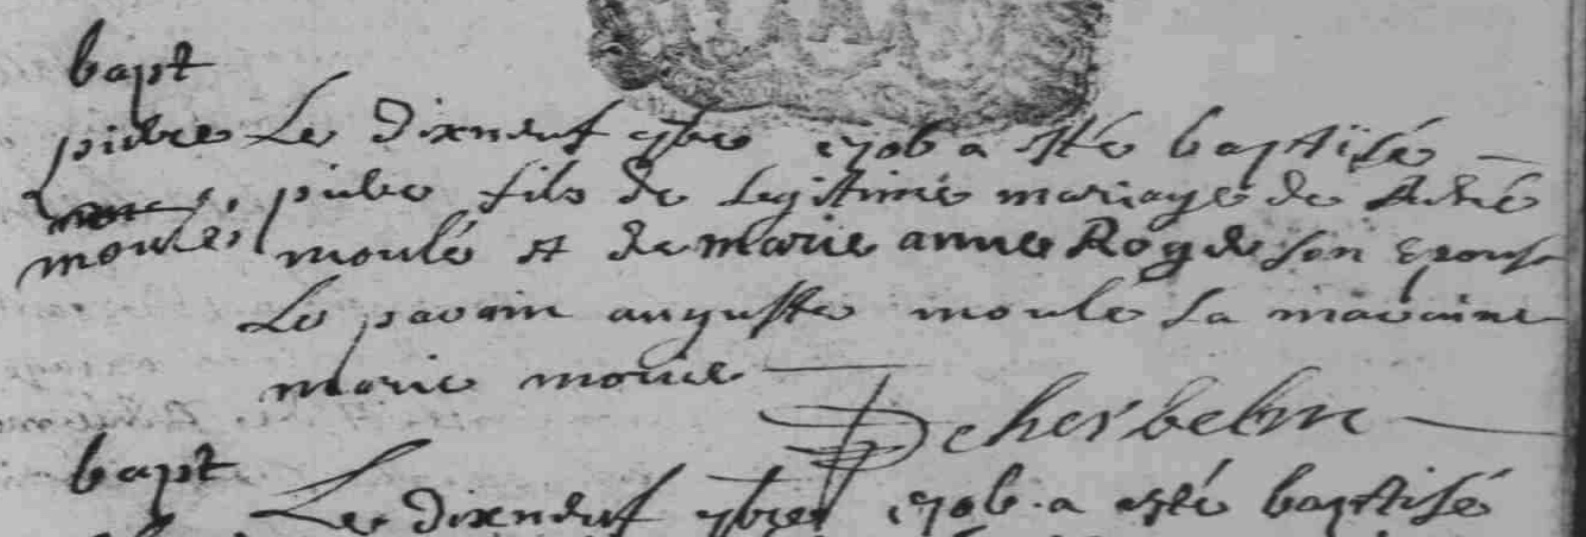 bapt
pierre Le dixneuf 9bre 1706 a esté baptisé
pierre fils de Legitime mariage de André
moulé moulé et de marie anne Rogde son Epouse
Le parain auguste moule la maraine
marie moule
Deherbelin
bapt
Le dixneuf 9bre 1706 a esté baptisé